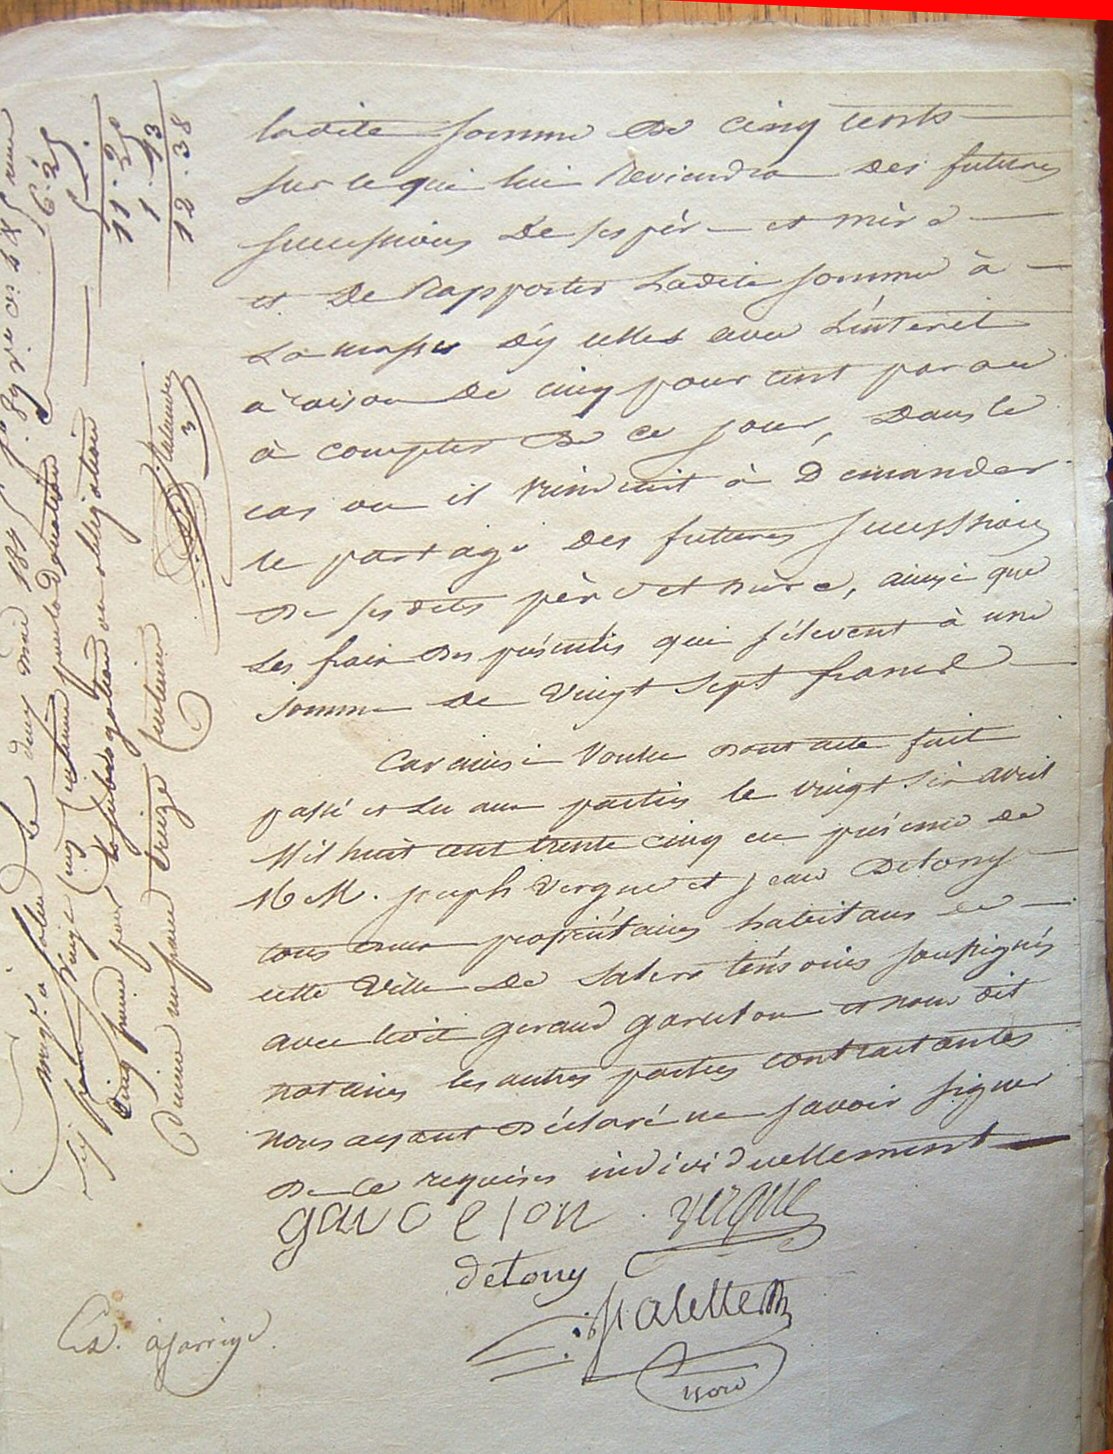 ladite somme De cinq cents
sur ce qui lui Reviendra Des futures
successions De ses père et mère
et De Rapporter Ladite somme à
La masse d'y celles avec L'interêt
à raison De cinq pour cent par an
à compter De ce jour, Dans le
cas ou il viendrait à Demander
le partage Des futures successions
De ses dits père et mère, ainsi que
Les frais Des présentes qui s'élevent à une
somme De vingt sept francs
Car ainsi Voulu Dont acte fait
passé et Lu aux parties le vingt six avril
Mil huit cent trente cinq en présence de
M M. joseph Vergne et jean Detony
tous deux propriétaires habitans de
cette Ville De Salers témoins soussignés
avec ledit geraud garceton et nous dit
notaires les autres parties contractantes
nous ayant Déclaré ne savoir signer
De ce requises individuellement
garceton vergne
detony
Valette
Enregé a Salers Le deux mai 1835 fo 89 ro cis 4 &amp; 5 reçu
six francs vingt cinq centimes pour la Donation
Cinq francs pour la subrogation ou obligation
Dixième un franc treize centimes
6. 25
5.
11. 25
1. 13
12. 38